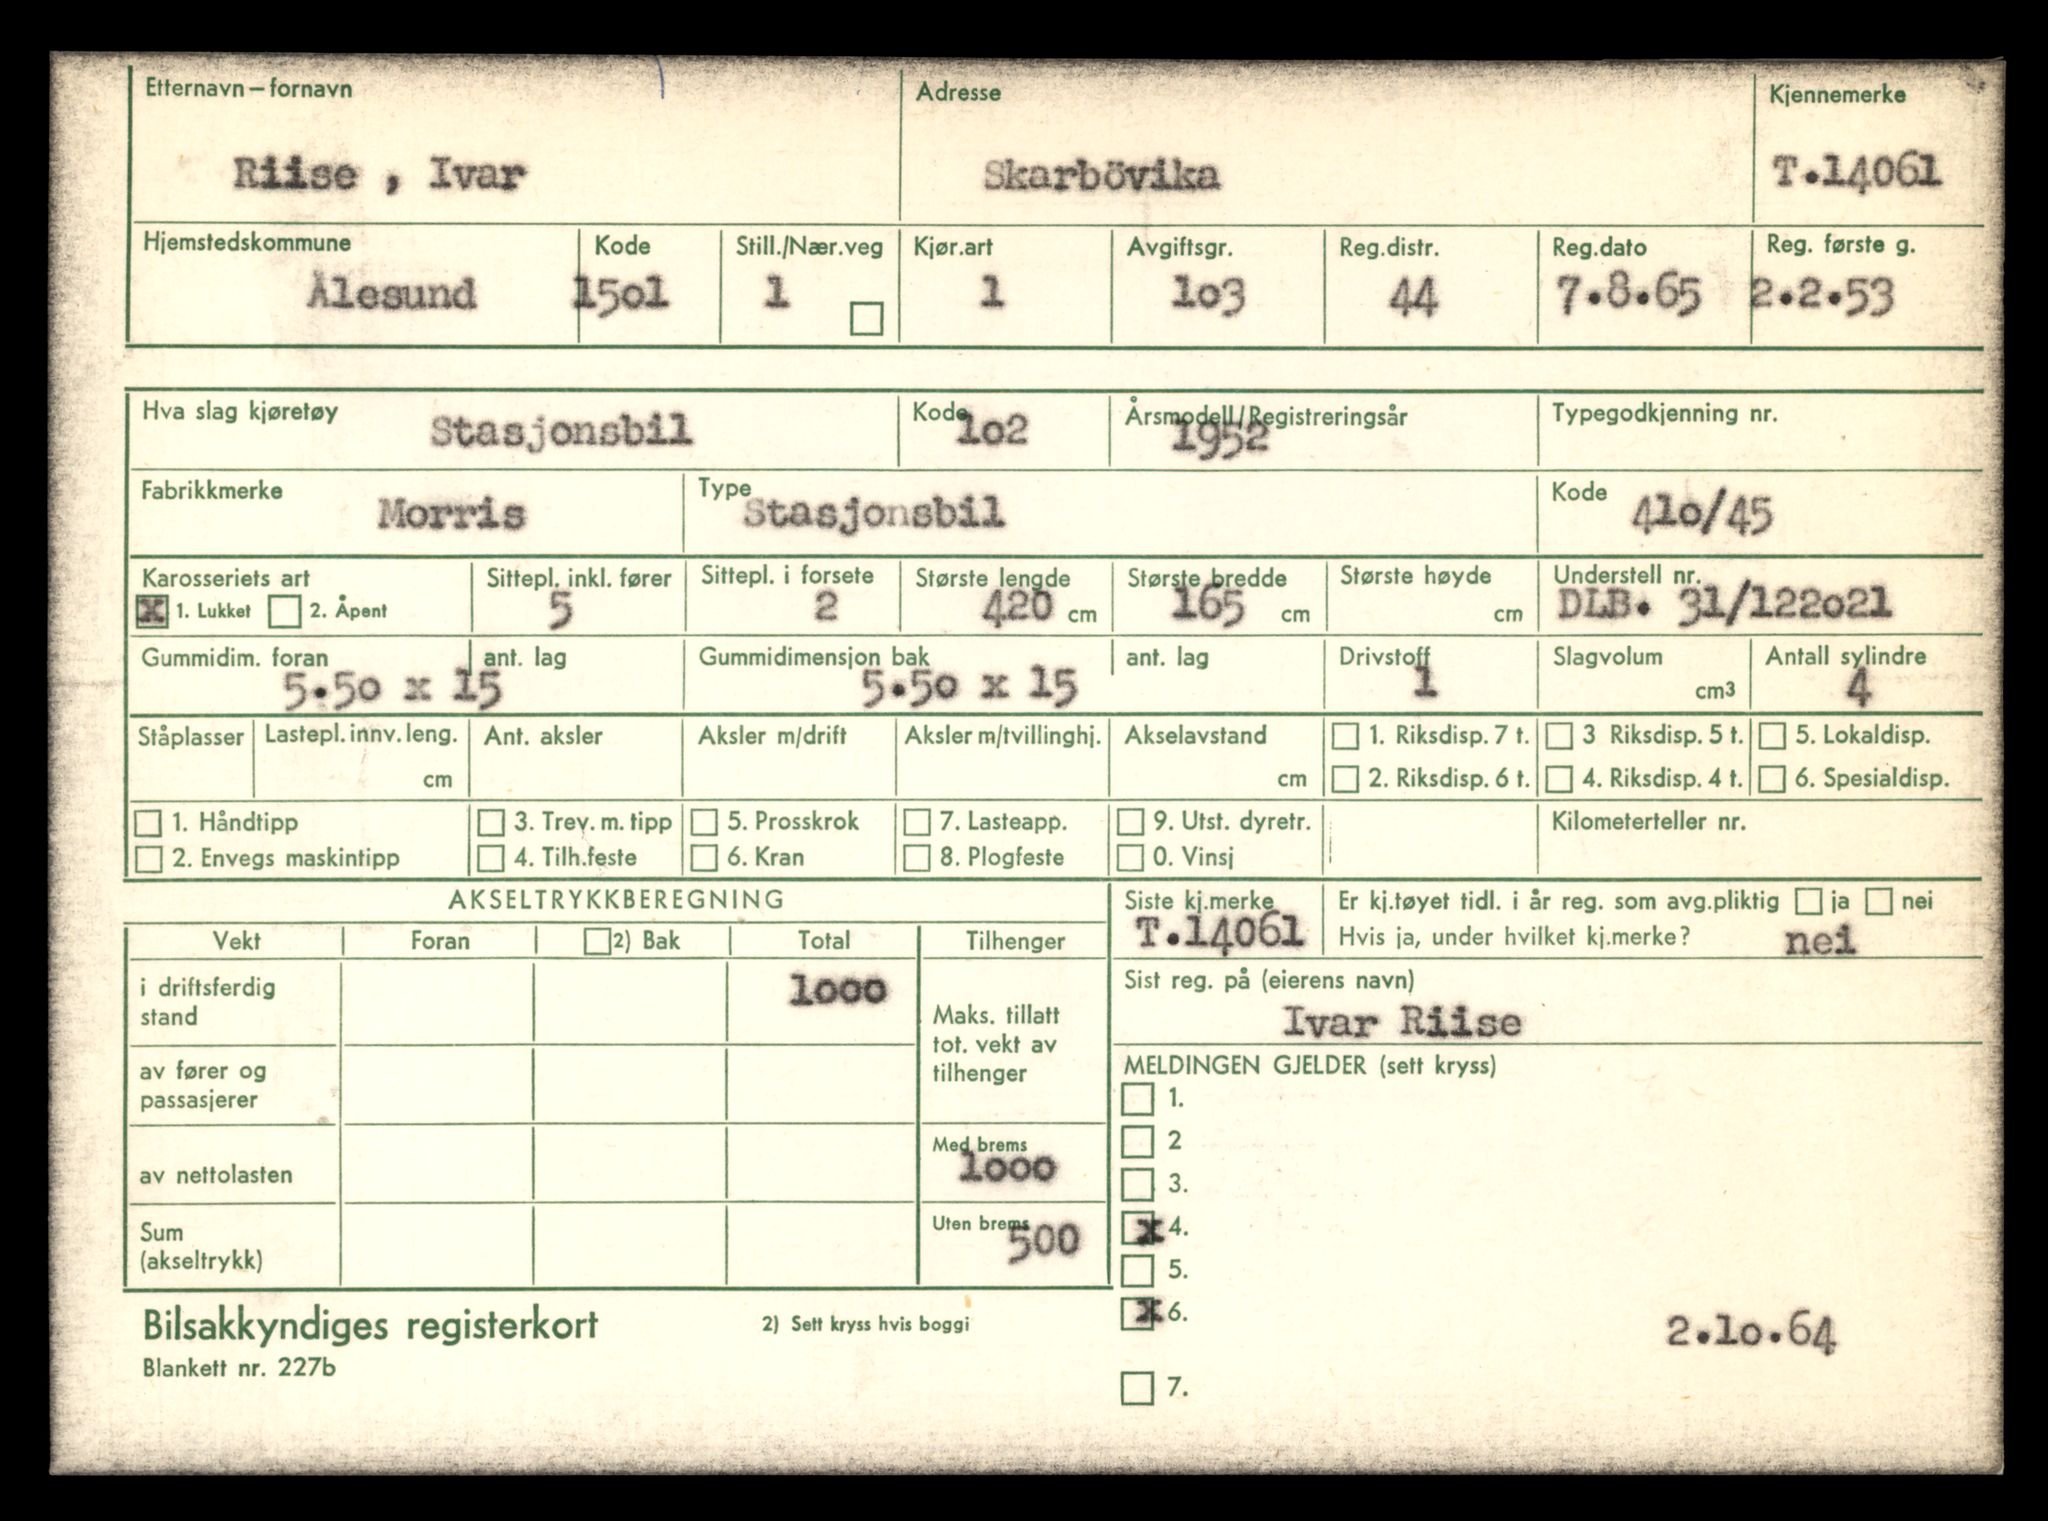 Etternavn – fornavn Adresse Kjennemerke
Riise , Ivar Skarbövika T.14061
Hjemstedskommune Kode Still./Nær.veg Kjør.art Avgiftsgr. Reg.distr. Reg.dato Reg. første g.
Ålesund 15o1 1 1 1o3 44 7.8.65 2.2.53
Hva slag kjøretøy Stasjonsbil Kode 1o2 Årsmodell/Registreringsår 1952 Typegodkjenning nr.
Fabrikkmerke Morris Type Stasjonsbil Kode 41o/45
Karosseriets art Sittepl. inkl. fører Sittepl. i forsete Største lengde Største bredde Største høyde Understell nr.
x 1. Lukket 2. Åpent 5 2 420 cm 165 cm cm DLB. 31/122o21
Gummidim. foran ant. lag Gummidimensjon bak ant. lag Drivstoff Slagvolum Antall sylindre
5.5o x 15 5.5o x 15 1 cm3 4
Ståplasser Lastepl. innv. leng. Ant. aksler Aksler m/drift Aksler m/tvillinghj. Akselavstand 1. Riksdisp. 7 t. 3 Riksdisp. 5 t. 5. Lokaldisp.
cm cm 2. Riksdisp. 6 t. 4. Riksdisp. 4 t. 6. Spesialdisp.
1. Håndtipp 3. Trev. m. tipp 5. Prosskrok 7. Lasteapp. 9. Utst. dyretr. Kilometerteller nr.
2. Envegs maskintipp 4. Tilh.feste 6. Kran 8. Plogfeste 0. Vinsj
AKSELTRYKKBEREGNING
Vekt Foran 2) Bak Total Tilhenger
i driftsferdig stand 1ooo
av fører og passasjerer
Maks. tillatt
tot. vekt av
tilhenger
av nettolasten
Med brems
1ooo
Sum
(akseltrykk)
Uten brems
500
Siste kj.merke Er kj.tøyet tidl. i år reg. som avg.pliktig ja nei
T.14061 Hvis ja, under hvilket kj.merke? nei
Sist reg. på (eierens navn)
Ivar Riise
MELDINGEN GJELDER (sett kryss)
1.
2
3.
x 4.
5.
x 6.
2.1o.64
7.
Bilsakkyndiges registerkort 2) Sett kryss hvis boggi
Blankett nr. 227b